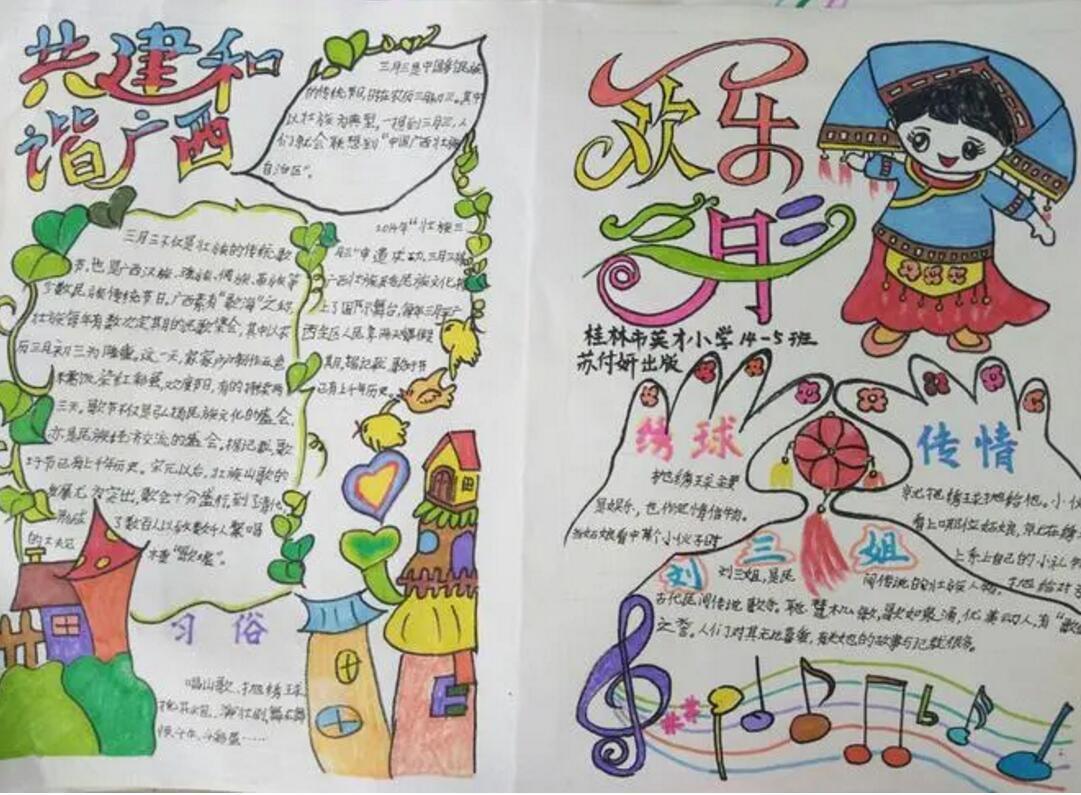 共建和
谐广西
三月三是中国多民族
的传统节日,时在农历三月初三。其中
以壮族为典型,一提到三月三,人
们就会联想到“中国广西壮族
自治区”。
三月三不仅是壮族的传统歌
节,也是广西汉族、瑶族、侗族、苗族等
个数民族传统节日,广西素有“歌海”之称,
壮族每年有数次定其月的民歌集会,其中以农
历三月初三为隆重。这一天,家家户户制作五色
糯饭,染红彩蛋,欢度节日,有的持续两
三天。歌节不仅是弘扬民族文化的盛会,
亦是民族经济交流的盛会。据记载,歌
圩节已有上千年历史。宋元以后,壮族山歌的
发展尤为突出,歌会十分盛行,到了清代,
形成了数百人以致数千人聚唱
的大
“歌墟”。
2014年“壮族三
月三”申遗成功,三月三将
广西壮族
民族文化
上了国际舞台,每年三月三广
西全区人民享
假
期。据记载,歌圩节
已有上千年历史。
习俗
唱山歌、抛绣球、
演壮剧,
欢乐
三月三
桂林市英才小学14-5班
苏付妍出版
绣球
传情
抛绣球主要
是娱乐,也作定情信物。
当姑娘看中某个小伙子时
就把绣球抛给他。小伙
看上哪位姑娘,就在绣
上系上自己的小礼物
抛给对
刘三姐
刘三姐,是民
间传说的壮族人物。
古代民间传说歌手。聪慧机敏,歌如泉涌,优美动人,有“歌
之誉。人们对其无比喜爱,有关她的故事与记载很多。